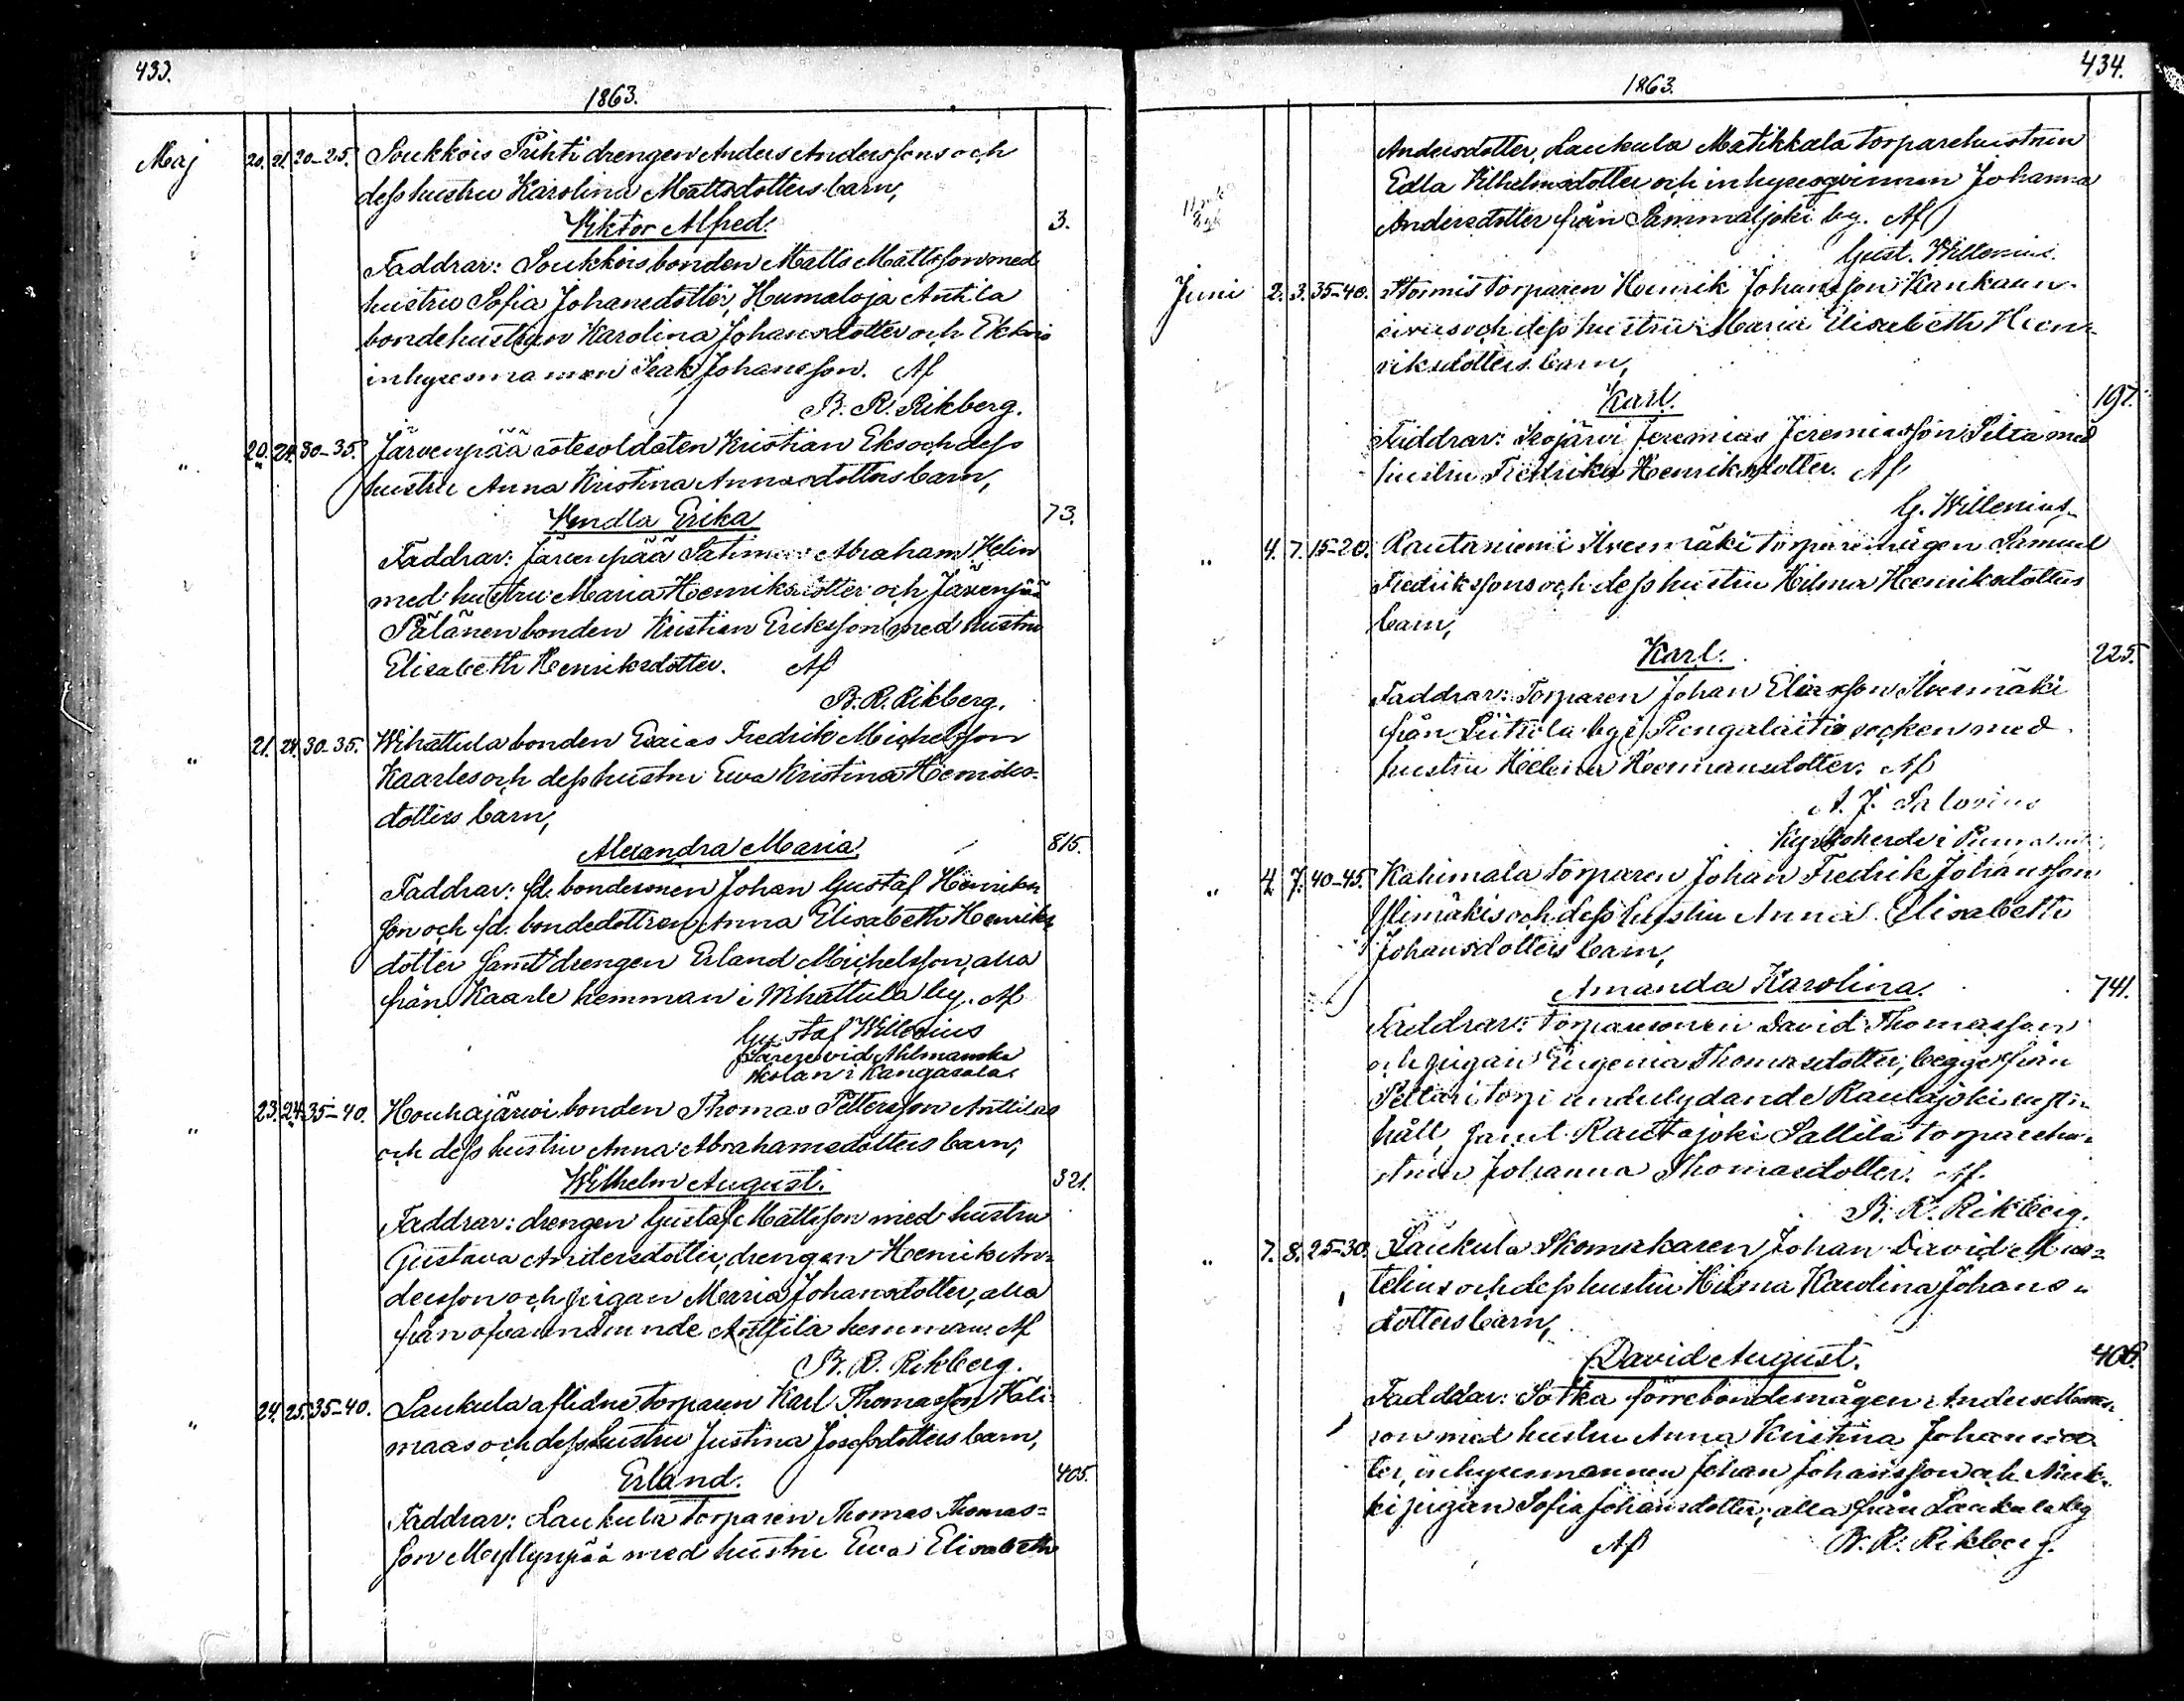 433.
1863.
Maj 20. 21. 20-25. Soukkois Prihti drengen Anders Anderssons och
dess hustru Karolina Mattsdotters barn,
Viktor Alfred. 3.
Faddrar: Soukkois bonden Matts Mattsson med
hustru Sofia Johansdotter, Humaloja Antila
bondehustrun Karolina Johansdotter och Ekkois
inhysesmannen Isak Johansson. Af
B. R. Rikberg.
" 20. 24. 30-35. Järvenpää rotesoldaten Kristian Eks och dess
hustru Anna Kristina Annasdotters barn,
Vendla Erika 73.
Faddrar: Järvenpää Abraham Helin
med hustru Maria Henriksdotter och Järvenpää
Pälänen bonden Kristian Eriksson med hustru
Elisabeth Henriksdotter. Af
B. R. Rikberg.
" 21. 24. 30-35. Wihattula bonden Esaias Fredrik Michelsson
Kaarles och dess hustru Ewa Kristina Henriks-
dotters barn,
Alexandra Maria. 815.
Faddrar: fd. bondesonen Johan Gustaf Henriks
son och fd. bondedottren Anna Elisabeth Henriks
dotter samt drengen Erland Michelsson, alla
från Kaarle hemman i Wihattula by. Af
Gustaf Willenius
Lärare vid Ahlmanska
skolan i Kangasala.
" 23. 24. 35-40. Houhajärvi bonden Thomas Pettersson Anttilas
och dess hustru Anna Abrahamsdotters barn,
Wilhelm August. 321.
Faddrar: drengen Gustaf Mattsson med hustru
Gustava Andersdotter, drengen Henrik An-
dersson och pigan Maria Johansdotter, alla
från ofvannämnde Anttila hemman. Af
B. R. Rikberg.
" 24. 25. 35-40. Laukula aflidne torparen Karl Thomasson Kali-
maas och dess hustru Justina Josefsdotters barn,
Erland. 405.
Faddrar: Laukula torparen Thomas Thomas=
son Myllynpää med hustru Ewa Elisabeth
434.
1863.
Andersdotter, Laukula Matikkala torparehustrun
Edla Vilhelmsdotter och inhysesqvinnan Johanna
Andersdotter från Sammaljoki by. Af
Gust. Willenius.
Juni 2. 3. 35-40. Stormis torparen Henrik Johansson Kankaan-
sivus och dess hustru Maria Elisabeth Hen-
riksdotters barn,
Karl. 197.
Faddrar: Isojärvi Jeremias Jeremiasson Pelta med
hustru Fredrika Henriksdotter. Af
G. Willenius.
" 4. 7. 15-20. Rautaniemi Ilvesmäki torparemågen Samuel
Fredrikssons och dess hustru Hilma Henriksdotters
barn,
Karl. 225.
Faddrar: Torparen Johan Eliasson Ilvesmäki
från Liitsola by i Pungalaitio socken med
hustru Helena Hermansdotter. Af
A. J. Salovius
Kyrkoherde i
" 4. 7. 40-45. Kahimala torparen Johan Fredrik Johansson
Ylimäkis och dess hustru Anna Elisabeth
Johansdotters barn,
Amanda Karolina. 741.
Faddrar: torparesonen David Thomasson
och pigan Eugenia Thomasdotter, begge från
Peltari torp underlydande Rautajoki rust-
håll, samt Rautajoki Sallila torparehu-
strun Johanna Thomasdotter. Af.
B. R. Rikberg.
" 7. 8. 25-30. Laukula Skomakaren Johan David Mus-
telius och dess hustru Hilma Karolina Johans-
dotters barn,
David August. 406.
Fadddar: Sotka förre bondemågen Anders
son med hustru Anna Kristina Johansdot
ter, inhysesmannen Johan Johansson och
ki pigan Sofia Johansdotter, alla från Laukula by
Af B. R. Rikberg.